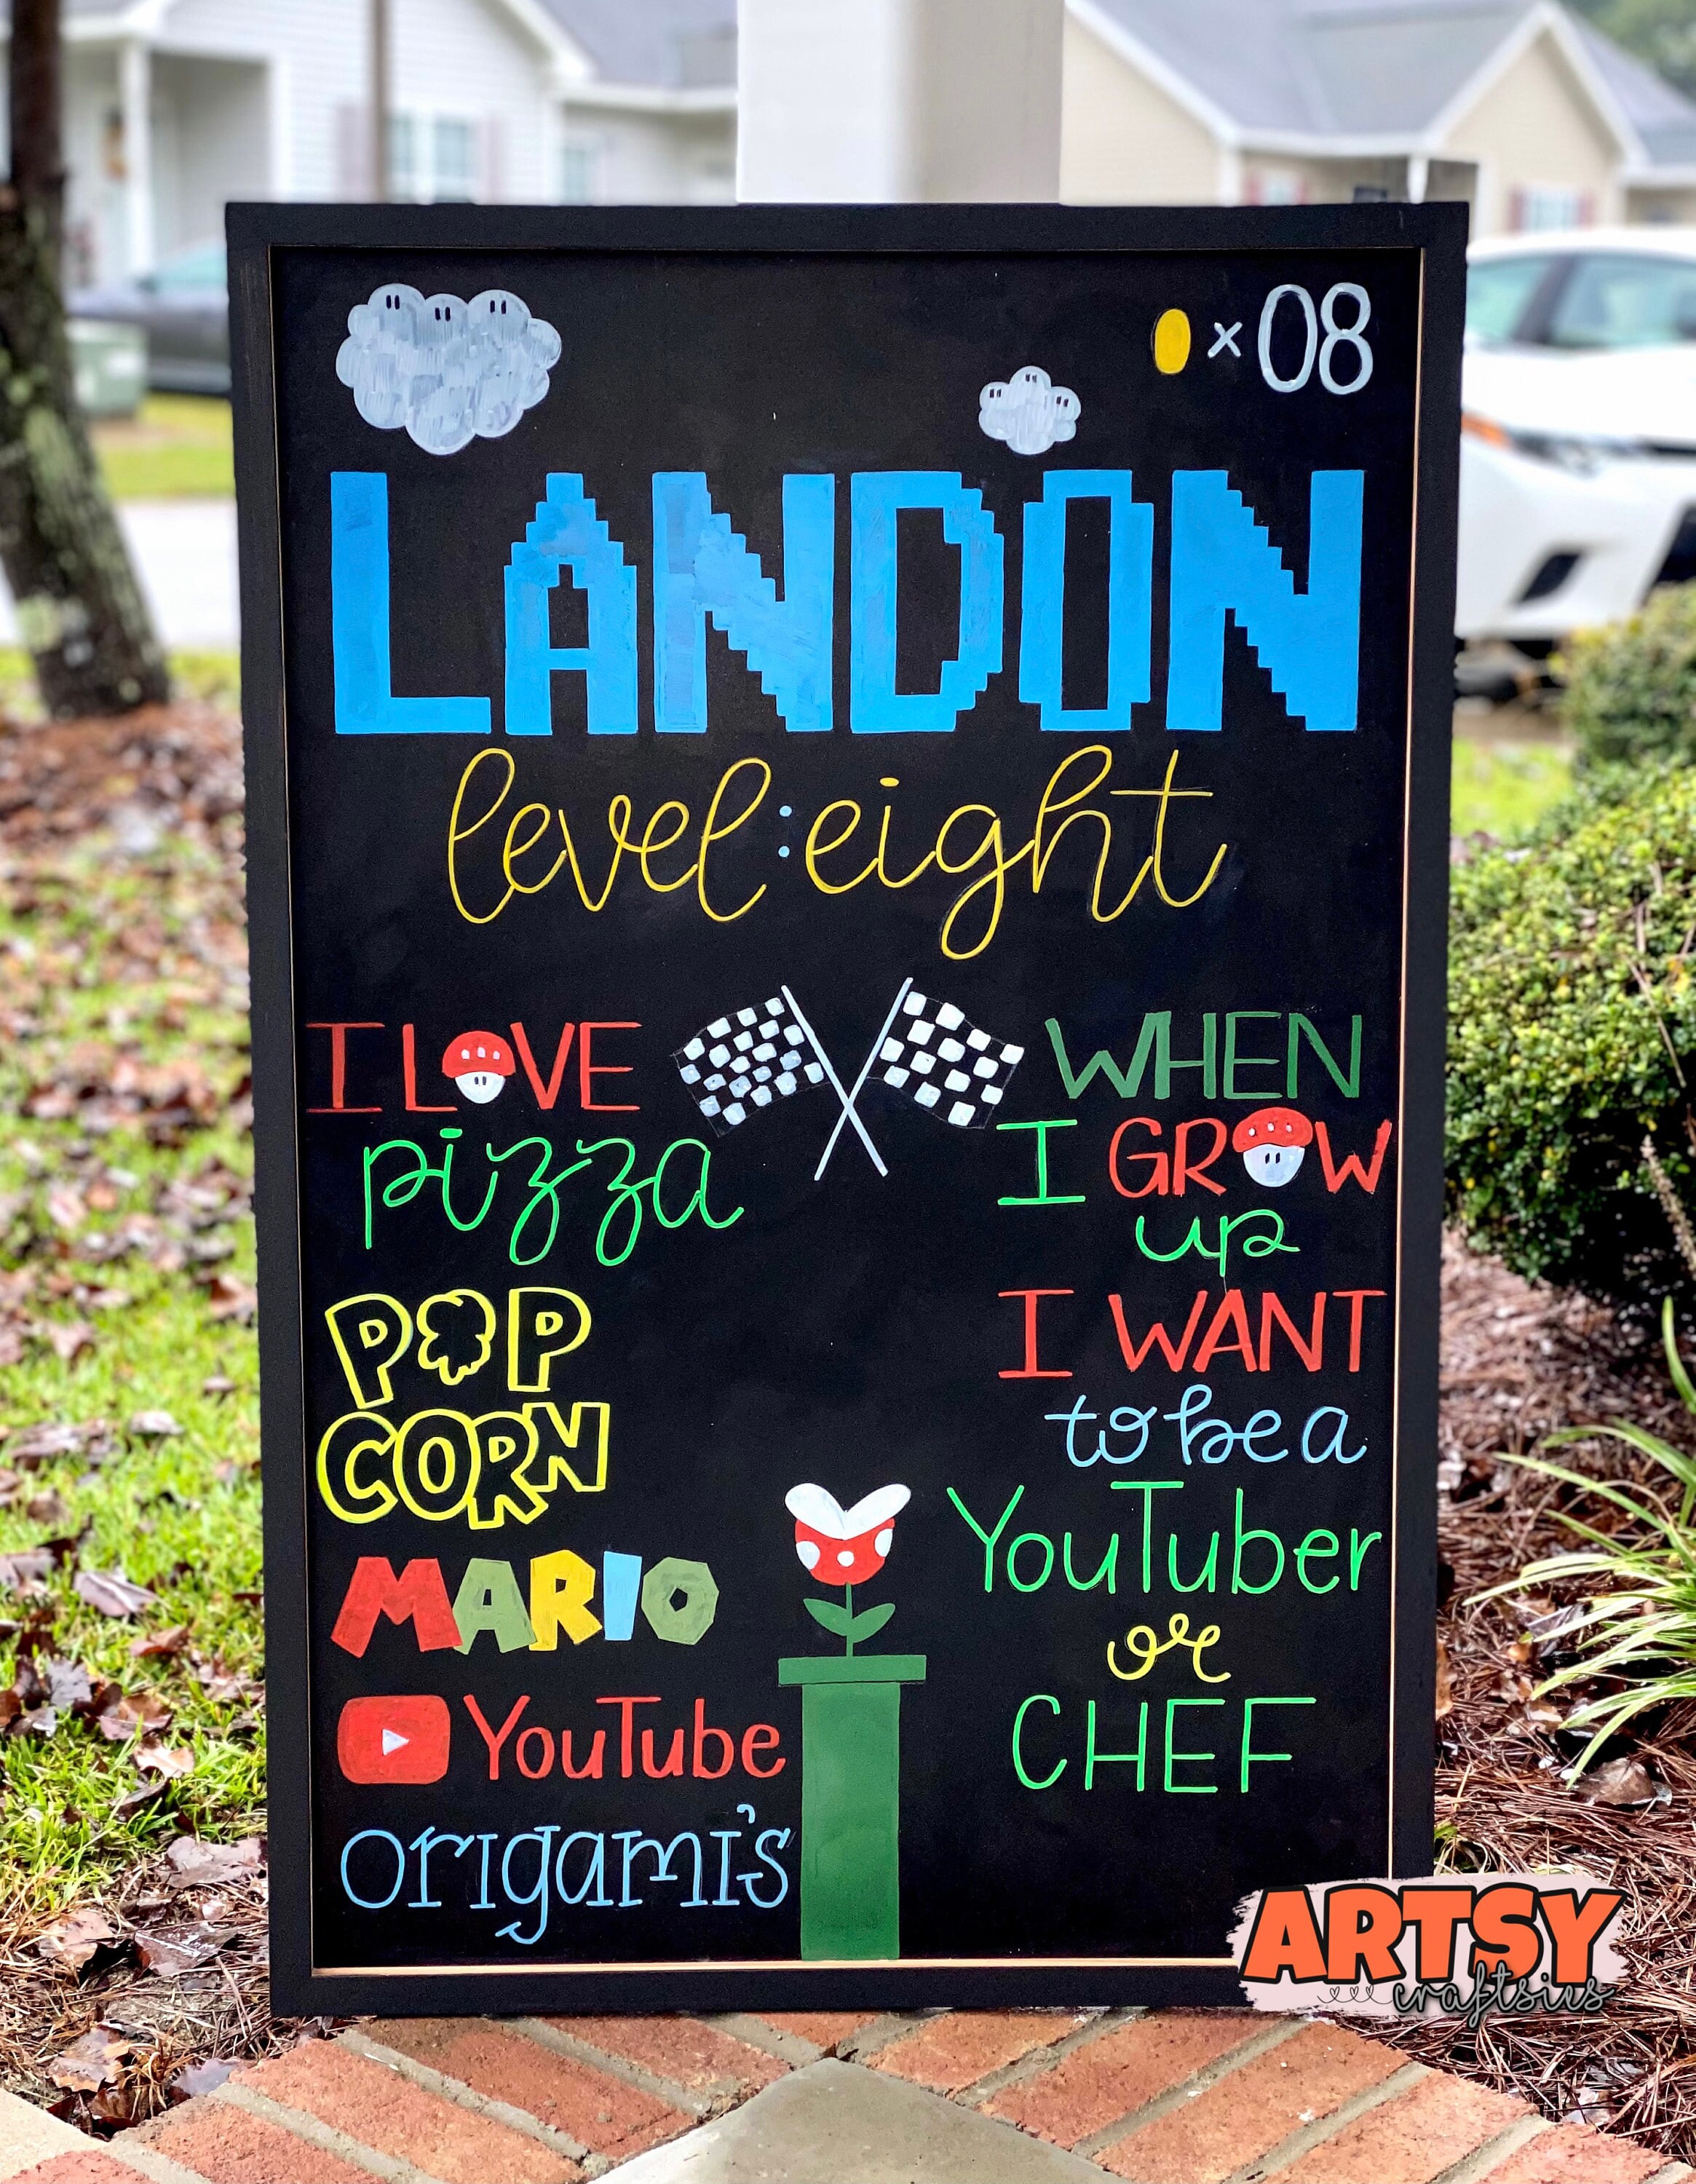 x 08
LANDON
level:eight
I LOVE
pizza
POP
CORN
MARIO
YouTube
origami's
WHEN
I GROW
up
I WANT
to be a
YouTuber
or
CHEF
ARTSY
craftsies